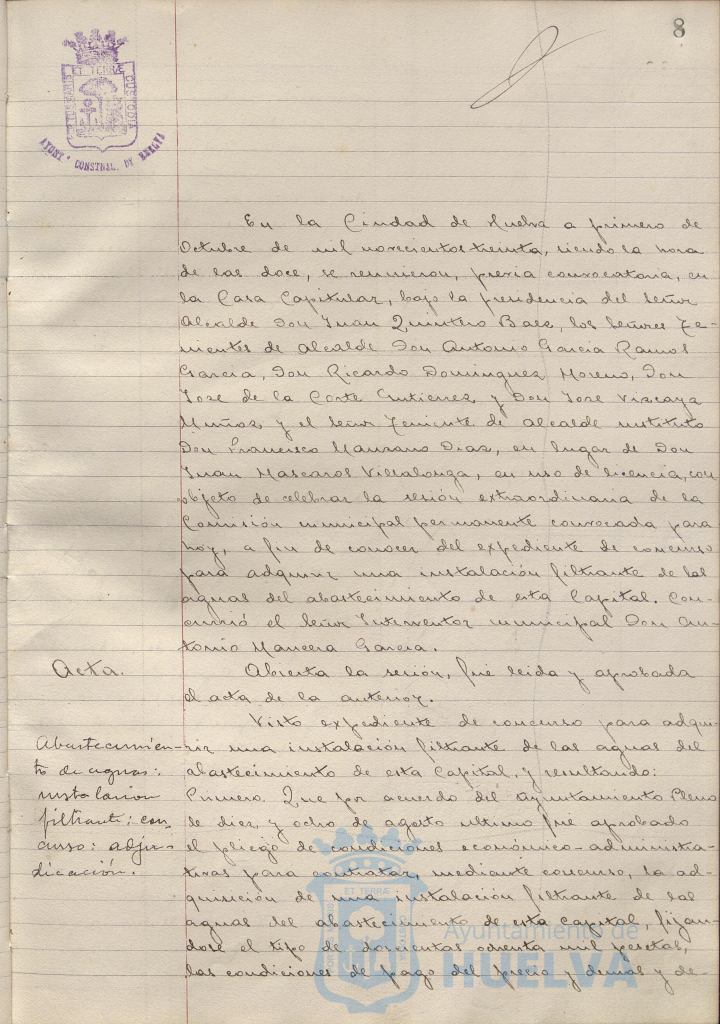 8
ET TERRÆ
CUSTODIA
AYUNT. CONSTNAL. DE HUELVA
En la Ciudad de Huelva a primero de
Octubre de mil novecientos treinta, siendo la hora
de las doce, se reunieron, previa convocatoria, en
la Casa Capitular, bajo la presidencia del Señor
Alcalde Don Juan Quintero Baez, los Señores Te-
nientes de Alcalde Don Antonio Garcia Ramos
Garcia, Don Ricardo Dominguez Moreno, Don
Jose de la Corte Gutierrez, y Don Jose Vizcaya
Muñoz y el Señor Teniente de Alcalde sustituto
Don Francisco Manzano Diaz, en lugar de Don
Juan Mascarol Villalonga, en uso de licencia, con
objeto de celebrar la sesión extraordinaria de la
Comisión municipal permanente convocada para
hoy, a fin de conocer del expediente de concurso
para adquirir una instalación filtrante de las
aguas del abastecimiento de esta Capital. Con-
currió el Señor Interventor municipal Don An-
tonio Mancera Garcia.
Acta.
Abierta la sesión, fué leida y aprobada
el acta de la anterior.
Abastecimien-
to de aguas:
instalación
filtrante: con-
curso: adju-
dicación.
Visto expediente de concurso para adqui-
rir una instalación filtrante de las aguas del
abastecimiento de esta Capital, y resultando:
Primero. Que por acuerdo del Ayuntamiento Pleno
de diez y ocho de agosto ultimo fué aprobado
el pliego de condiciones económico-administra-
tivas para contratar, mediante concurso, la ad-
quisición de una instalación filtrante de las
aguas del abastecimiento de esta capital, fijan-
dose el tipo de doscientas ochenta mil pesetas,
las condiciones de pago del precio y demas y de-
ET TERRÆ
Ayuntamiento de
HUELVA